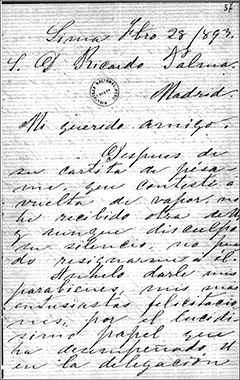 37
Lima Fbro 28/893.
S. D. Ricardo Palma.
Madrid.
Mi querido amigo.
Despues de
su cartita de pesa-
me, que contesté a
vuelta de vapor, no
he recibido otra de U
y aunque disculpo
su silencio, no pue
do resignarme a él.
Anhelo darle mis
parabienes, mis mas
entusiastas felicitacio
nes, por el lucidi
simo papel que
ha desempeñado, U
en la delegación